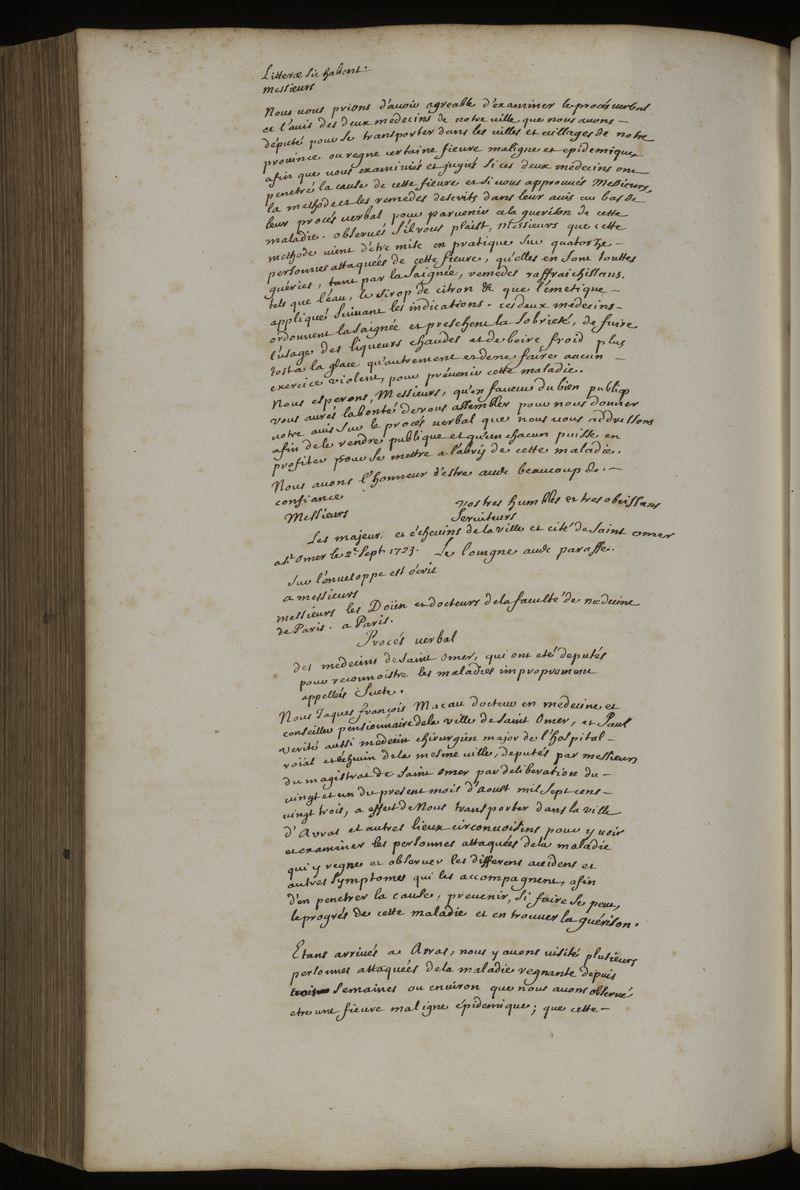 Litteræ sic habent.
Messieurs
Nous vous prions d'avoir agreable d'examiner le procés verbal
et l'avis des deux medecins de notre ville que nous avons —
député pour se transporter dans les villes et villages de notre
province ou regne certaine fievre maligne et epidemique
afin que vous examiniés et jugiés si ces deux medecins ont
penetré la cause de cette fievre et si vous approuvés Messieurs,
la methode et les remedes descrits dans leur avis au bas de
leur procés verbal pour parvenir a la guerison de cette
maladie. observés s'il vous plaist, Messieurs que cette
methode vient d'étre mise en pratique sur quatorze —
personnes attaquées de cette fievre, qu'elles en sont touttes
guéries, tant par la saignée, remedes raffraichissans,
tels que l'eau, le sirop de citron &c que l'émetique —
appliqué suivant les indications. ces deux medecins —
ordonnent la saignée et preschent la sobrieté, de fuire
l'usage des liqueurs chaudes et de boire froid plus
tost a la glace qu'autrement et de ne faire aucun —
exercice violent, pour prévenir cette maladie.
Nous esperons, Messieurs, qu'en faveur du bien publiq
vous aurés la bonté de vous assembler pour nous donner
votre avis sur le procés verbal que nous vous addressons
afin de le rendre publique et qu'un chacun puisse en
profiter pour se mettre a l'abry de cette maladie.
Nous avons l'honneur d'estre avec beaucoup de. —
confiance
Messieurs
vos tres humbles et tres obeissans
serviteurs
Les majeur et échevins de la ville et cité de Saint omer
a St. omer le 2e. Sept. 1723. Le loingne avec paraffe.
Sur l'enveloppe est écrit
a messieurs
messieurs les Doïen et docteurs de la faculté de medecine
de Paris. a Paris.
Procés verbal
des medecins de Saint omer, qui ont eté deputés
pour reconnoistre les maladies improprement
appellées Suete.
Nous Jaques françois Macau docteur en medecine et
conseiller pensionnaire de la ville de Saint Omer, et Paul
verité aussi medecin chirurgien major de l'hospital —
roïal et échevin de la mesme ville, deputés par messieurs
du magistrat de Saint Omer par deliberation du —
vingt et un du present mois d'Aoust mil sept cens —
vingt trois, a effect de Nous transporter dans la ville
d'Arras et autres lieux circonvoisins pour y voir
et examiner les personnes attaquées de la maladie
qui y regne et observer les differens accidens et
autres symptomes qui les accompagnent, afin
d'en penetrer la cause, prevenir, si faire se peut,
le progrés de cette maladie et en trouver la guérison.
Etans arrivés a Arras, nous y avons visité plusieurs
personnes attaquées de la maladie regnante depuis
trois semaines ou environ que nous avons observé
etre une fievre maligne épidemique; que cette —